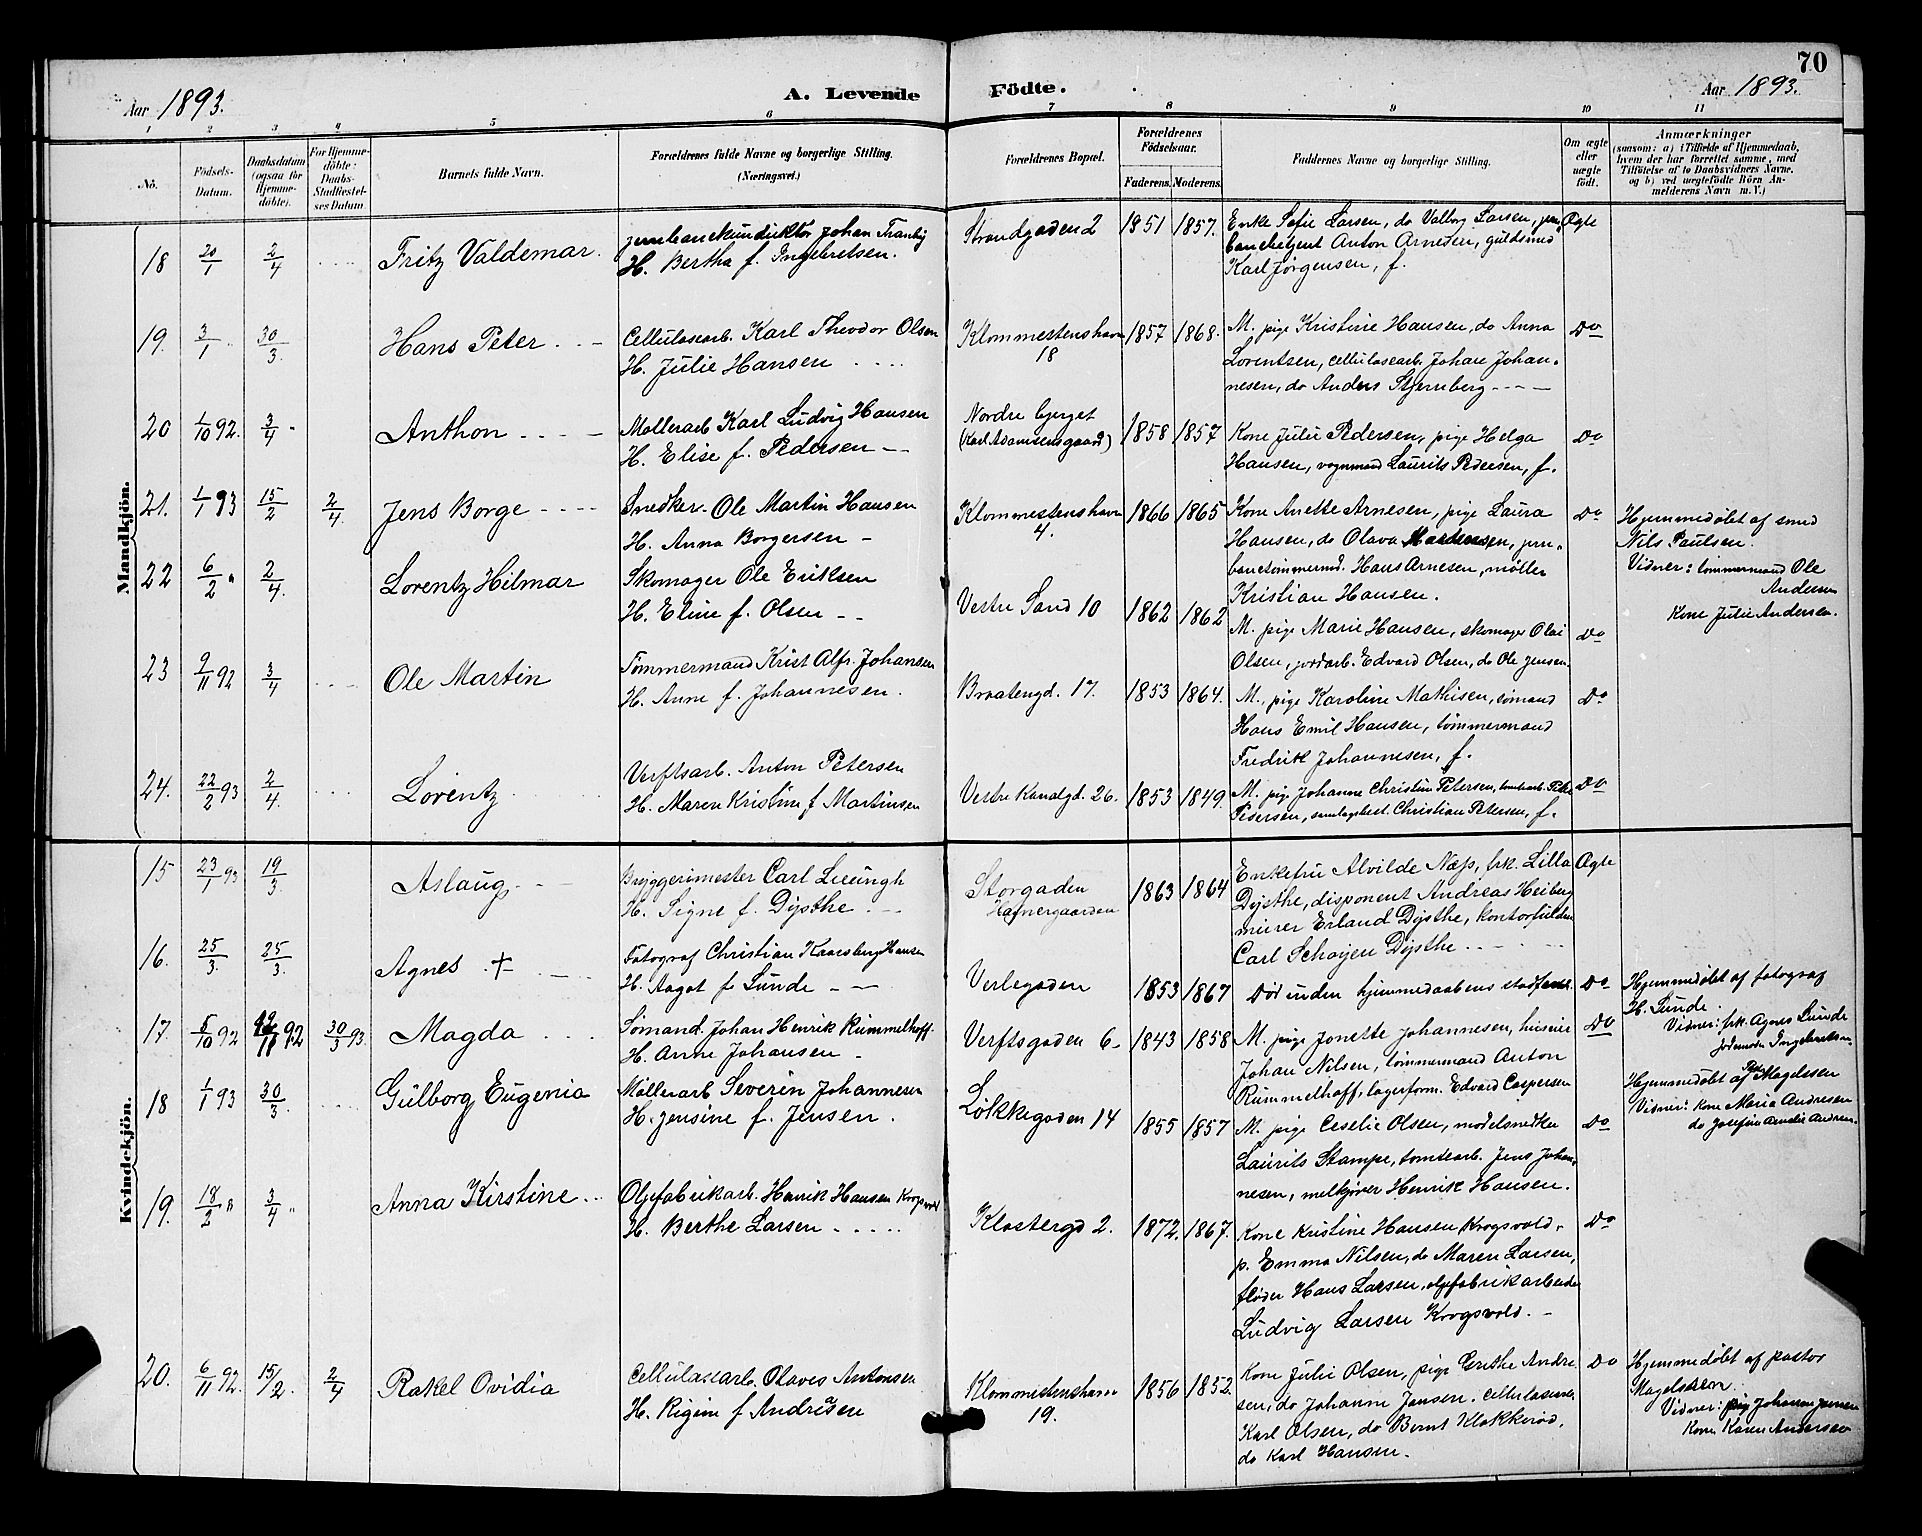 70
Aar 1893.
A. Levende Födte.
Aar 1893.
1 2 3 4 5 6 7 8 9 10 11
No.
Födsels-Datum.
Daabsdatum (ogsaa for Hjemme-döbte).
For Hjemme-döbte: Daabs-Stadfæstel-ses Datum.
Barnets fulde Navn.
Forældrenes fulde Navne og borgerlige Stilling.
(Næringsvei.)
Forældrenes Bopæl.
Forældrenes Födselsaar.
Faderens. Moderens.
Faddernes Navne og borgerlige Stilling.
Om ægte eller uægte födt.
Anmærkninger
(saasom: a) i Tilfælde af Hjemmedaab,
hvem der har forrettet samme, med
Tilföielse af to Daabsvidners Navne.
og b) ved uægtefödte Börn An-
melderens Navn m. V.)
Mandkjön.
18 20/1 2/4 Fritz Valdemar.
jernbanekunduktør Johan Tranby
H. Bertha f. Ingebretsen.
Strandgaden 2 1851 1857.
Enke Sofie Larsen, do Valborg Larsen, jern
banebetjent Anton Arnesen, guldsmed
Karl Jørgensen, f.
Ægte
19. 3/1 30/3 Hans Peter
Cellulosearb. Karl Theodor Olsen
H. Julie Hansen
Klommestenshavn 18 1857 1868.
M. pige Kristine Hansen, do Anna
Lorentsen, cellulosearb. Johan Johan-
nesen, do Anders Stjernberg
Do
20 1/10 92. 3/4 Anthon
Møllerarb Karl Ludvig Hansen
H. Elise f. Pedersen
Nordre bjerget
(Karl Adamsensgaard) 1858 1857
Kone Julie Pedersen, pige Helga
Hansen, vognmand Laurits Pedersen, f.
Do
21. 1/1 93 15/2 2/4. Jens Borge
Snedker. Ole Martin Hansen
H. Anna Borgersen
Klommestenshavn 4. 1866 1865
Kone Anette Arnesen, pige Laura
Hansen, do Olava Martensen, jern-
banetømmermd. Hans Arnesen, møller
Kristian Hansen.
Do
Hjemmedøbt af smed
Nils Paulsen.
Vidner: tømmermand Ole
Andersen
Kone Julie Andersen.
22 6/2 " 2/4. Lorentz Hilmar
Skomager Ole Eriksen
H. Eline f. Olsen
Vestre Sand 10 1862 1862
M. pige Marie Hansen, skomager Olai
Olsen, jordarb. Edvard Olsen, do Ole Jensen.
Do
23 9/11 92 3/4 Ole Martin
Tømmermand Krist. Alfr. Johansen
H. Anne f. Johannesen.
Braatengd. 17. 1853 1864.
M., pige Karoline Mathisen, sømand
Hans Emil Hansen, tømmermand
Fredrik Johannesen, f.
Do
24. 22/2 93 2/4. Lorentz
Verftsarb. Anton Petersen
H. Maren Kristine f Martinsen
Vestre Kanalgd. 26. 1853 1849.
M. pige Johanne Christine Petersen,
Pedersen, Christian Petersen, f.
Do
Kvindekjön.
15 23/1 93 19/3. Aslaug
Bryggerimester Carl Lieungh
H. Signe f. Dysthe
Storgaden
Hafnergaarden 1863 1864
Enkefru Alvilde Næss, frk. Lilla
Dysthe, disponent Andreas Heiberg
murer Erland Dysthe, kontorfuldm
Carl Schøyen Dysthe
Ægte
16. 25/3. 25/3. Agnes +
Fotograf Christian Kaarsberg Hansen
H. Aagot f Lunde
Verlegaden 1853 1867
Død inden hjemmedaabens stadfæst.
Do
Hjemmedøbt af fotograf
H. Lunde
Vidner: frk. Agnes Lunde
Jordemoder Ingebretsen
17. 5/10 92 92 30/3 93. Magda
Sømand. Johan Henrik Rummelhoff.
H. Anne Johansen
Verftsgaden 6 1843 1858
M. pige Jonette Johannesen, husier
Johan Nilsen, tømmermand Anton
Rummelhoff, lagerform. Edvard Caspersen
Do
Hjemmedøbt af Magelssen
Vidner: kone Maria Andresen
do Josefine Amalie Andresen.
18 1/1 93 30/3. Gulborg Eugenia
Møllerarb Severin Johannesen
H. Jensine f. Jensen.
Løkkegaden 14 1855 1857
M. pige Ceselie Olsen, modelsnedker
Laurits Stampe, tomtearb. Jens Johan-
nesen, melkjører Henrik Hansen.
Do
19. 18/2 " 3/4 " Anna Kirstine
Oljefabrikarb. Henrik Hansen Krogsvold
H. Berthe Larsen
Klostergd 2. 1872. 1867.
Kone Kristine Hansen Krogsvold,
p. Emma Nilsen, do Maren Larsen,
fløder Hans Larsen, oljefabrikarbeider
Ludvig Larsen Krogsvold.
Do
20. 6/11 92. 15/2. 2/4 Rakel Ovidia
Cellulosearb. Olaves Antonsen
H. Rigine f Andresen
Klommestenshavn 19. 1856 1852.
Kone Julie Olsen, pige Grethe Andre
sen, do Johanne Jansen. cellulosearb
Karl Olsen, do Bernt Klokkerød,
do Karl Hansen.
Do
Hjemmedøbt af pastor
Magelssen.
Vidner: pige Johanne Jansen
Kone Karen Andersen